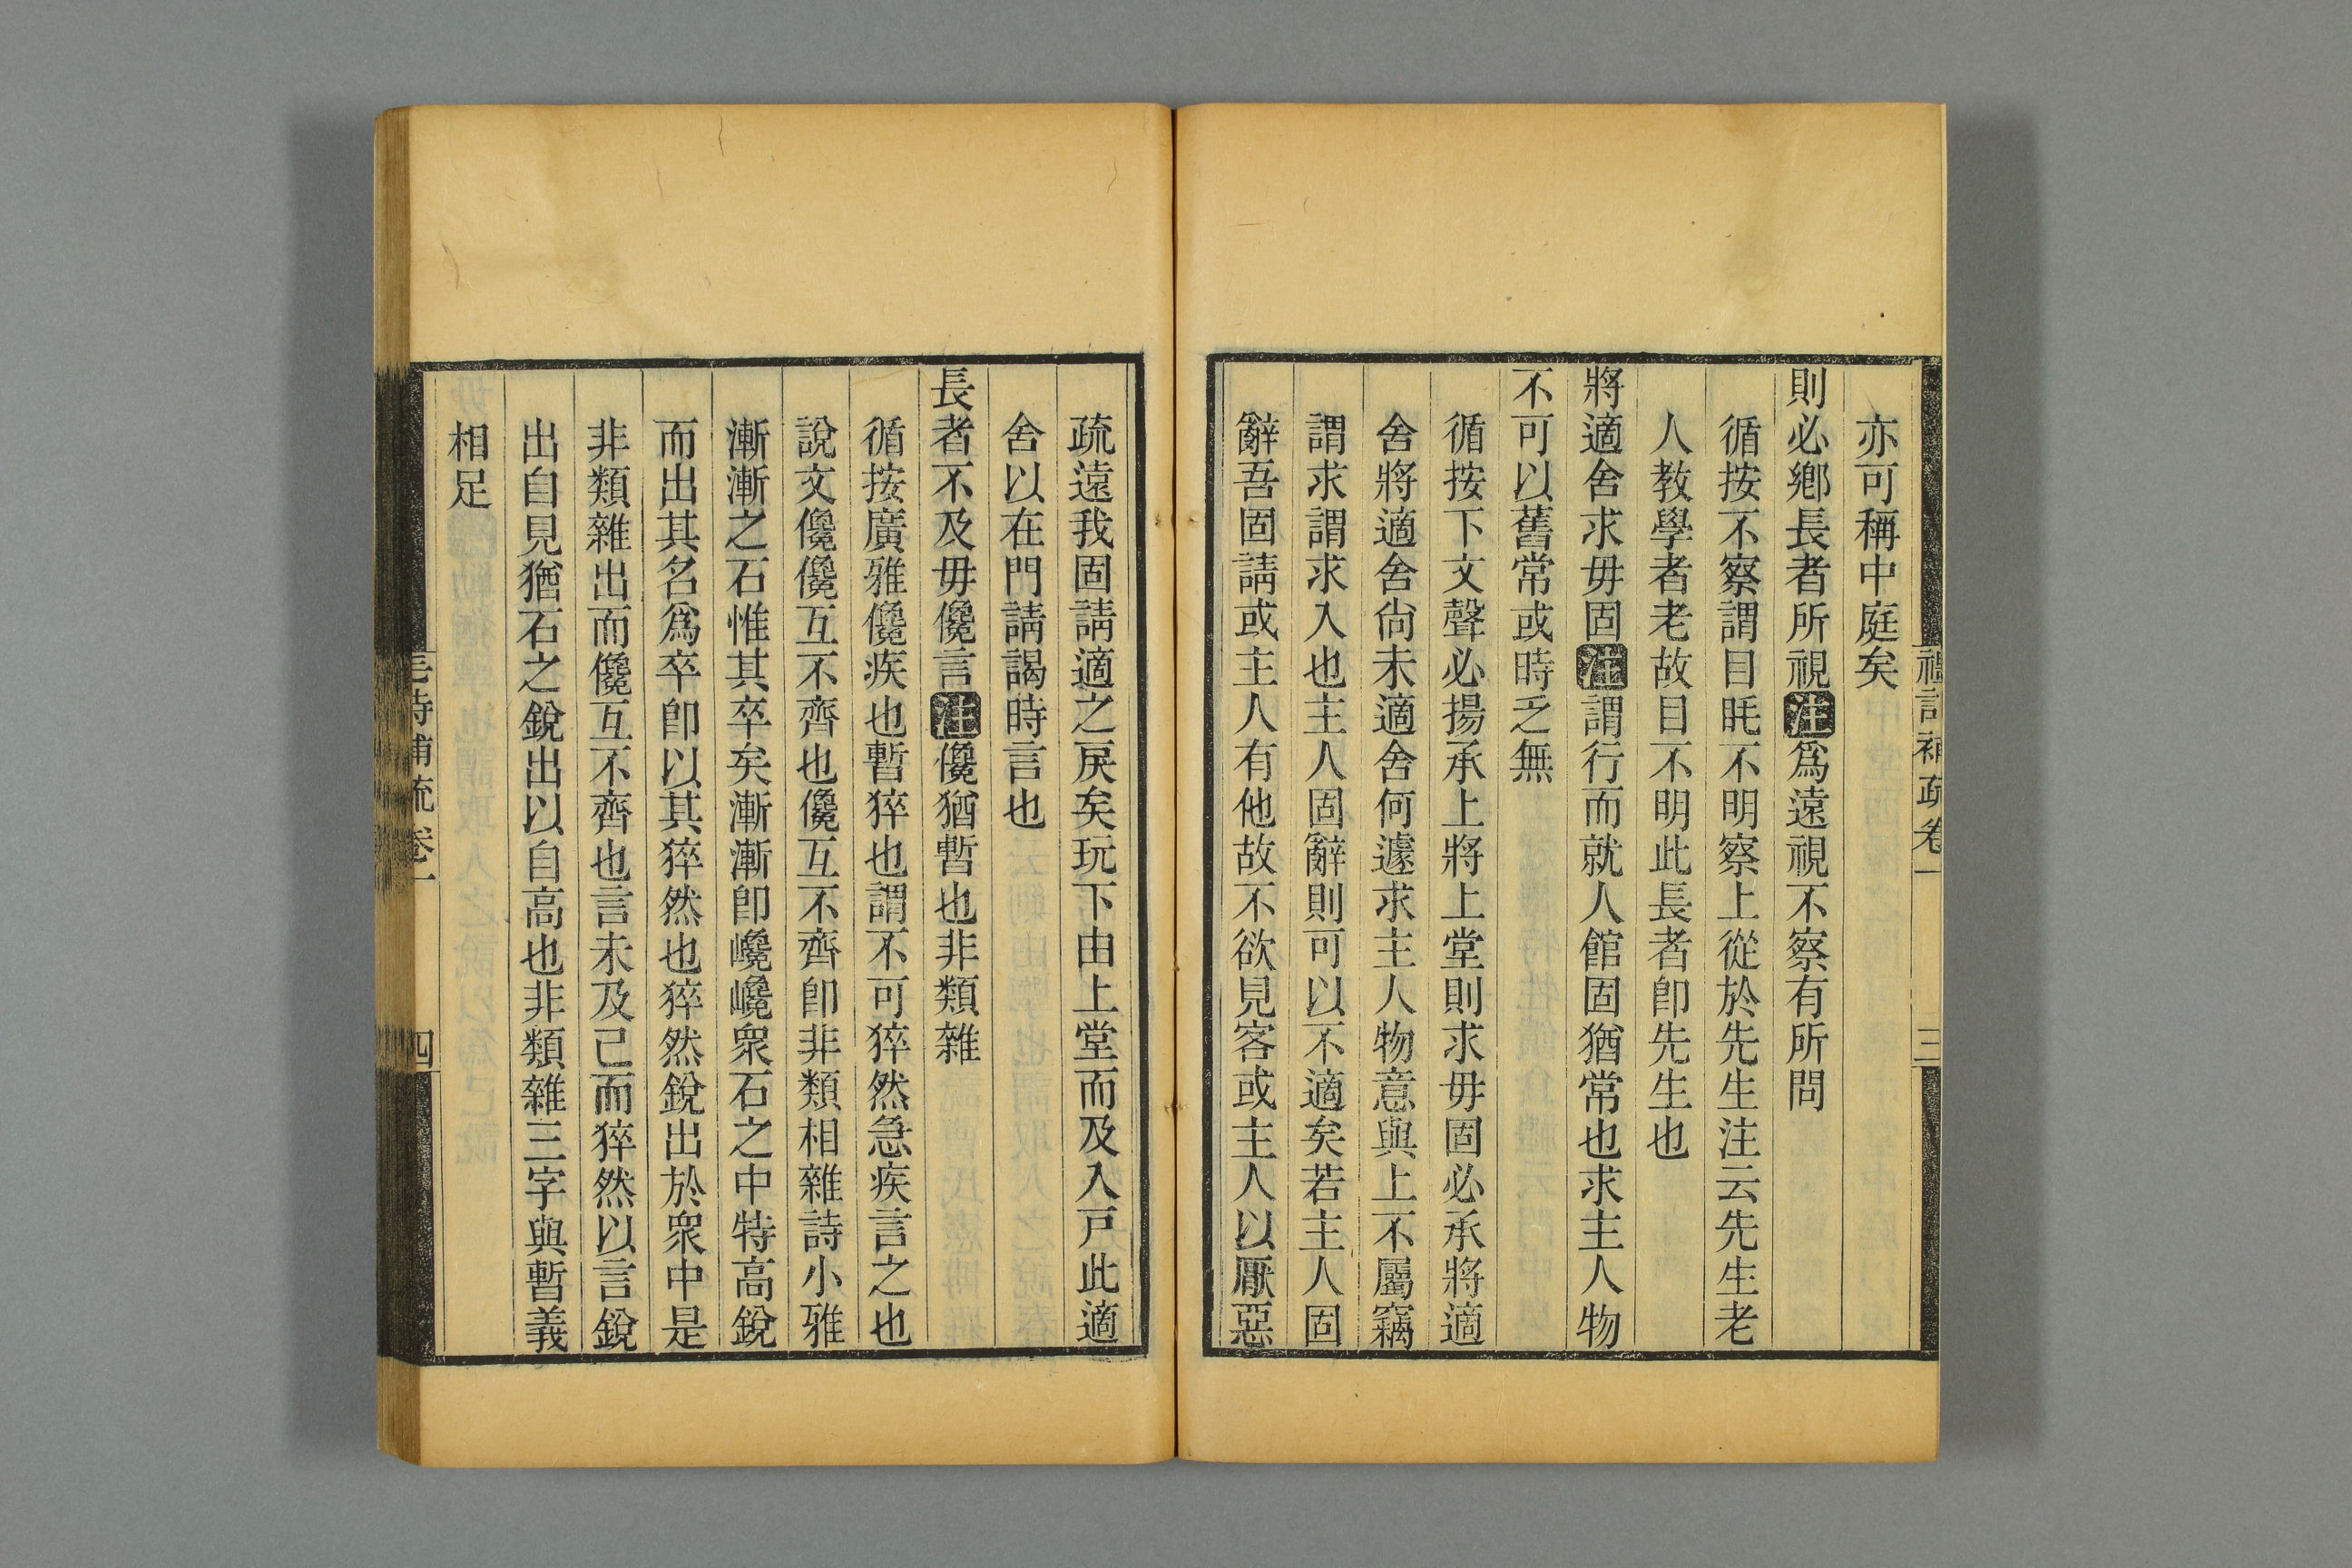 禮記補疏卷一 三
亦可稱中庭矣
則必鄕長者所視注爲遠視不察有所問
循按不察謂目眊不明察上從於先生注云先生老
人教學者老故目不明此長者卽先生也
將適舍求毋固注謂行而就人館固猶常也求主人物
不可以舊常或時乏無
循按下文聲必揚承上將上堂則求毋固必承將適
舍將適舍尙未適舍何遽求主人物意與上不屬竊
謂求謂求入也主人固辭則可以不適矣若主人固
辭吾固請或主人有他故不欲見客或主人以厭惡
疏遠我固請適之戾矣玩下由上堂而及入戸此適
舍以在門請謁時言也
長者不及毋儳言注儳猶暫也非類雜
循按廣雅儳疾也暫猝也謂不可猝然急疾言之也
說文儳儳互不齊也儳互不齊卽非類相雜詩小雅
漸漸之石惟其卒矣漸漸卽巉巉衆石之中特高銳
而出其名爲卒卽以其猝然也猝然銳出於衆中是
非類雜出而儳互不齊也言未及己而猝然以言銳
出自見猶石之銳出以自高也非類雜三字與暫義
相足
毛詩補疏卷一 四